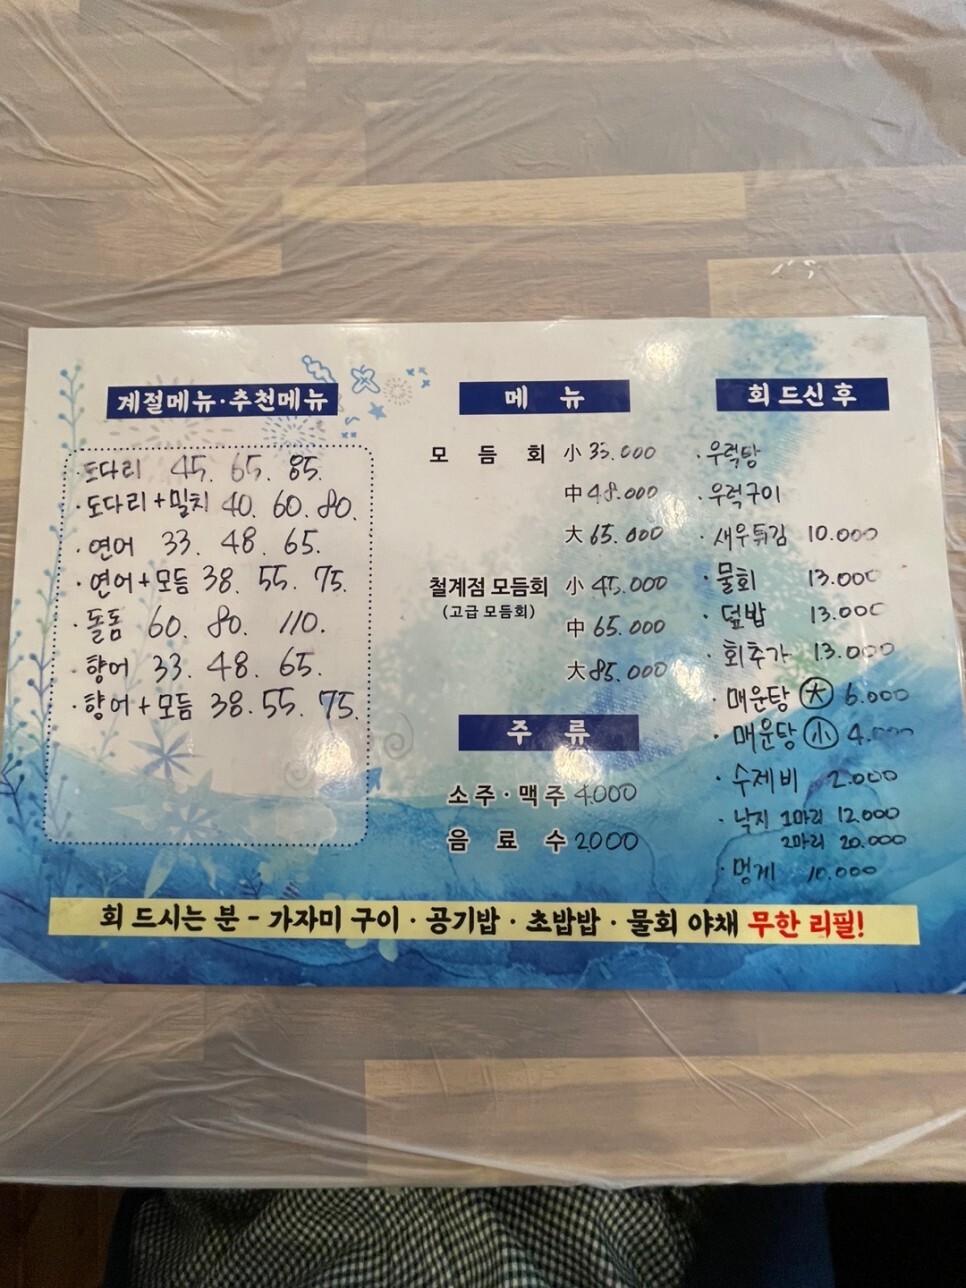 계절메뉴·추천메뉴
·도다리 45. 65. 85.
·도다리+밀치 40. 60. 80.
·연어 33. 48. 65.
·연어+모듬 38. 55. 75.
·돌돔 60. 80. 110.
·향어 33. 48. 65.
·향어+모듬 38. 55. 75.
메 뉴
모 듬 회 小 35.000
中 48.000
大 65.000
철계점 모듬회 小 45.000
(고급 모듬회)
中 65.000
大 85.000
주 류
소주·맥주 4.000
음 료 수 2000
회 드신 후
·우럭탕
·우럭구이
·새우튀김 10.000
·물회 13.000
·덮밥 13.000
·회추가 13.000
·매운탕 大 6.000
·매운탕 小 4.000
·수제비 2.000
·낙지 1마리 12.000
2마리 20.000
·멍게 10.000
회 드시는 분 - 가자미 구이 · 공기밥 · 초밥밥 · 물회 야채 무한 리필!